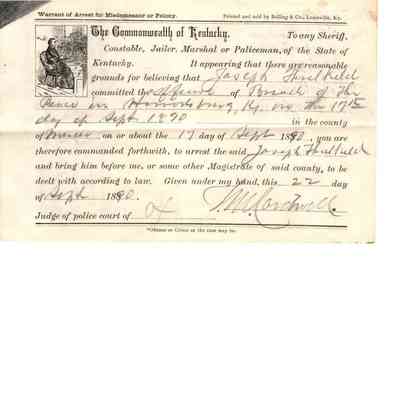 "Warrant of Arrest for Misdemeanor or Felony. Printed and sold by Bolling & Co., Louisville, Ky.
The Commonwealth of Kentucky. To any Sheriff,
Constable, Jailer, Marshal or Policeman, of the State of
Kentucky. It appearing that there are reasonable
grounds for believing that Joseph
committed the offence of Breach of the
Peace in Harrodsburg, Ky. on the 17th
day of Sept. 1890 in the county
of Mercer on or about the 17 day of Sept 1890, you are
therefore commanded forthwith, to arrest the said Joseph
and bring him before me, or some other Magistrate of said county, to be
dealt with according to law. Given under my hand, this 22 day
of Sept 1890.
Judge of police court of
*Offense or Crime as the case may be.